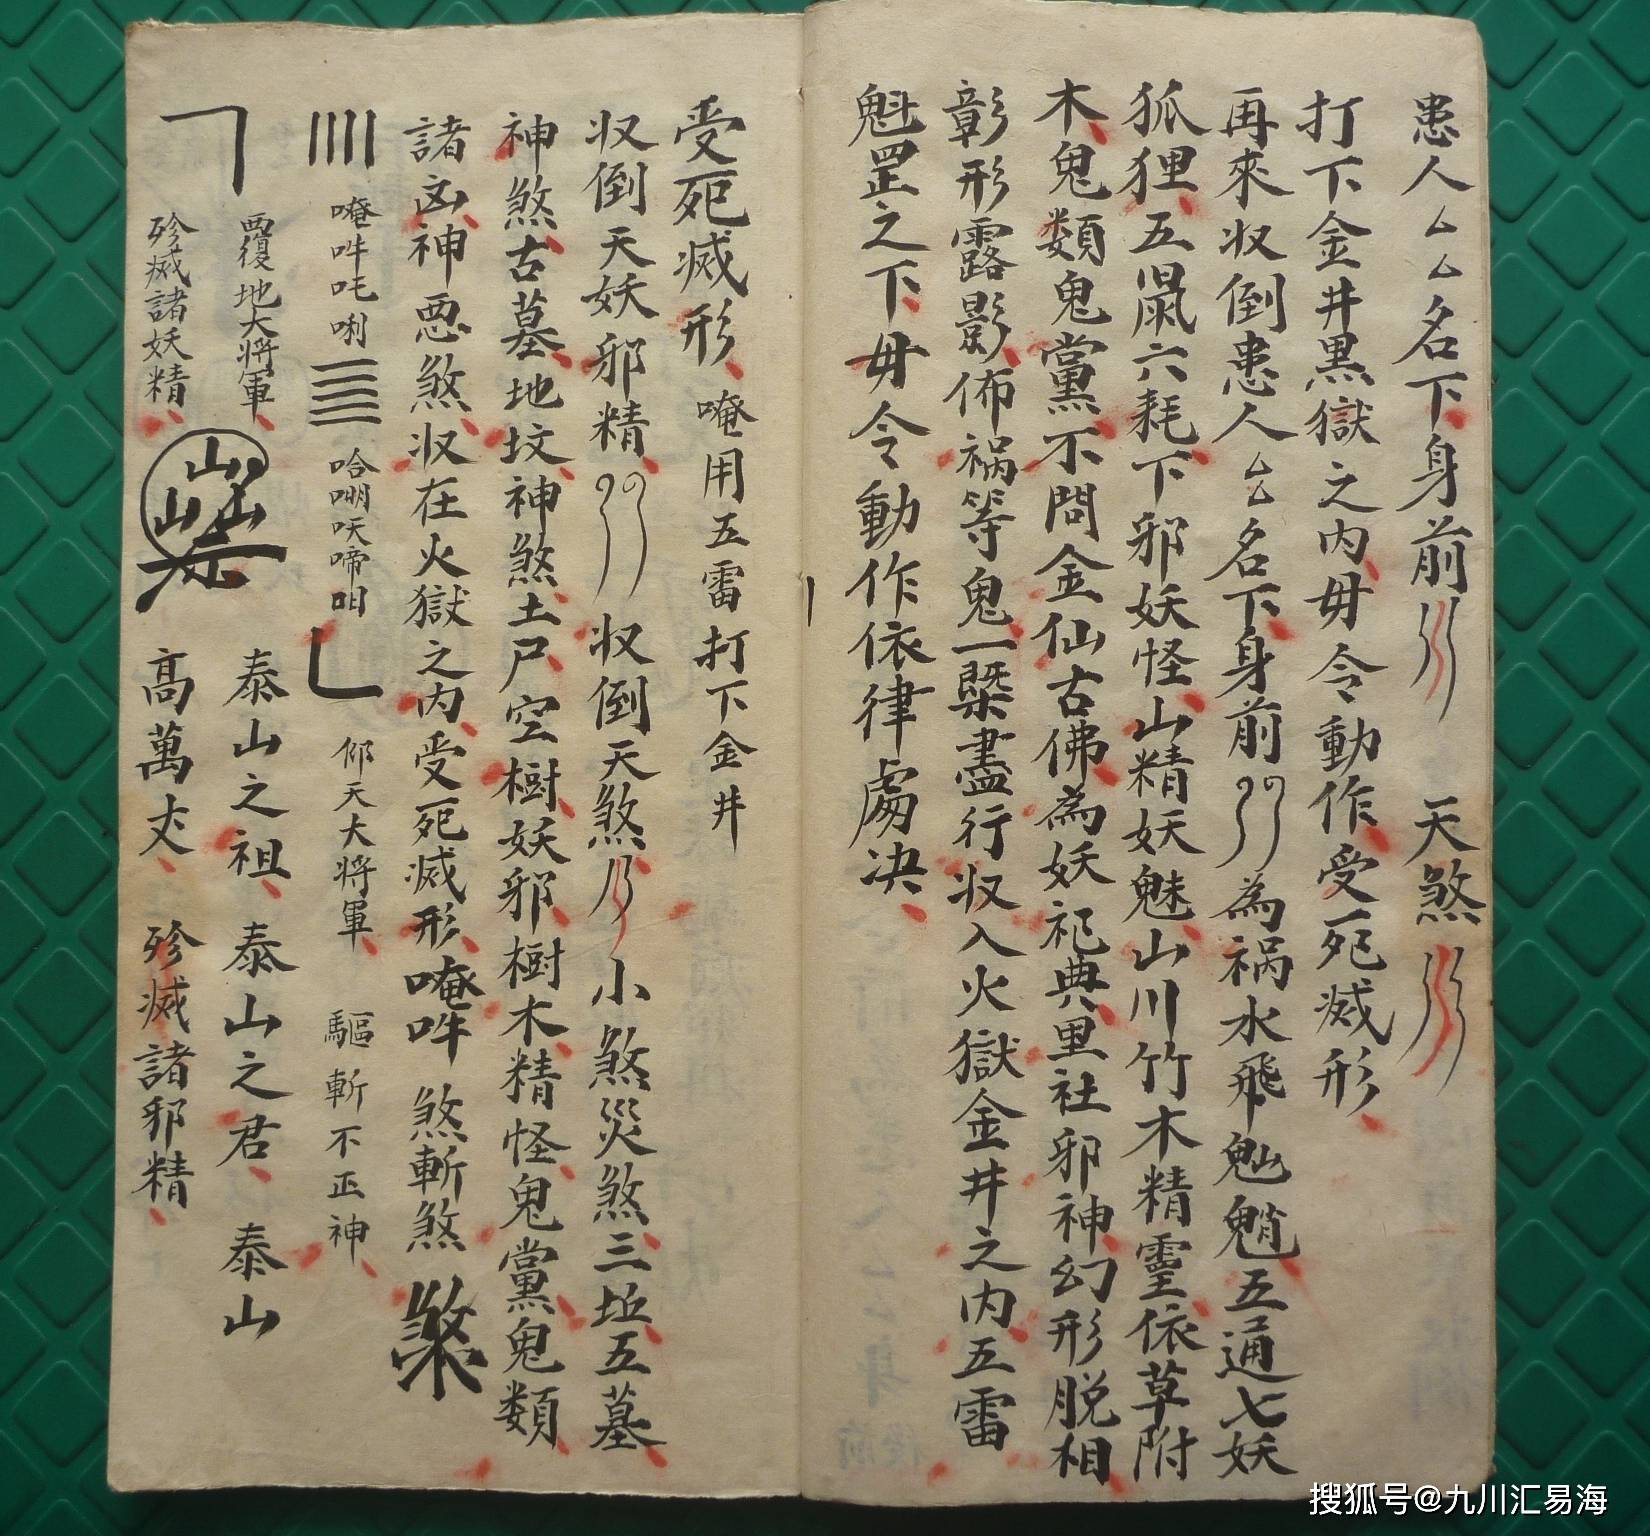 患人厶厶名下身前 天煞
打下金井黑獄之内毋令動作受死滅形
再來收倒患人厶厶名下身前 為禍水飛魈五通七妖
狐狸五鼠六耗下邪妖怪山精妖魅山川竹木精靈依草附
木鬼類鬼黨不問金仙古佛為妖祀典里社邪神幻形脫相
彰形露影佈禍等鬼一槩盡行收入火獄金井之内五雷
魁罡之下毋令動作依律處决
受死滅形唵用五雷打下金井
收倒天妖邪精 收倒天煞 小煞災煞三坵五墓
神煞古墓地坟神煞土尸空樹妖邪樹木精怪鬼黨鬼類
諸凶神惡煞收在火獄之内受死滅形唵吽煞斬煞
唵吽吒唎 哈㘣䀑啼呾 仰天大将軍 驅斬不正神
覆地大将軍 泰山之祖泰山之君泰山
殄滅諸妖精 高萬丈 殄滅諸邪精
搜狐号@九川汇易海